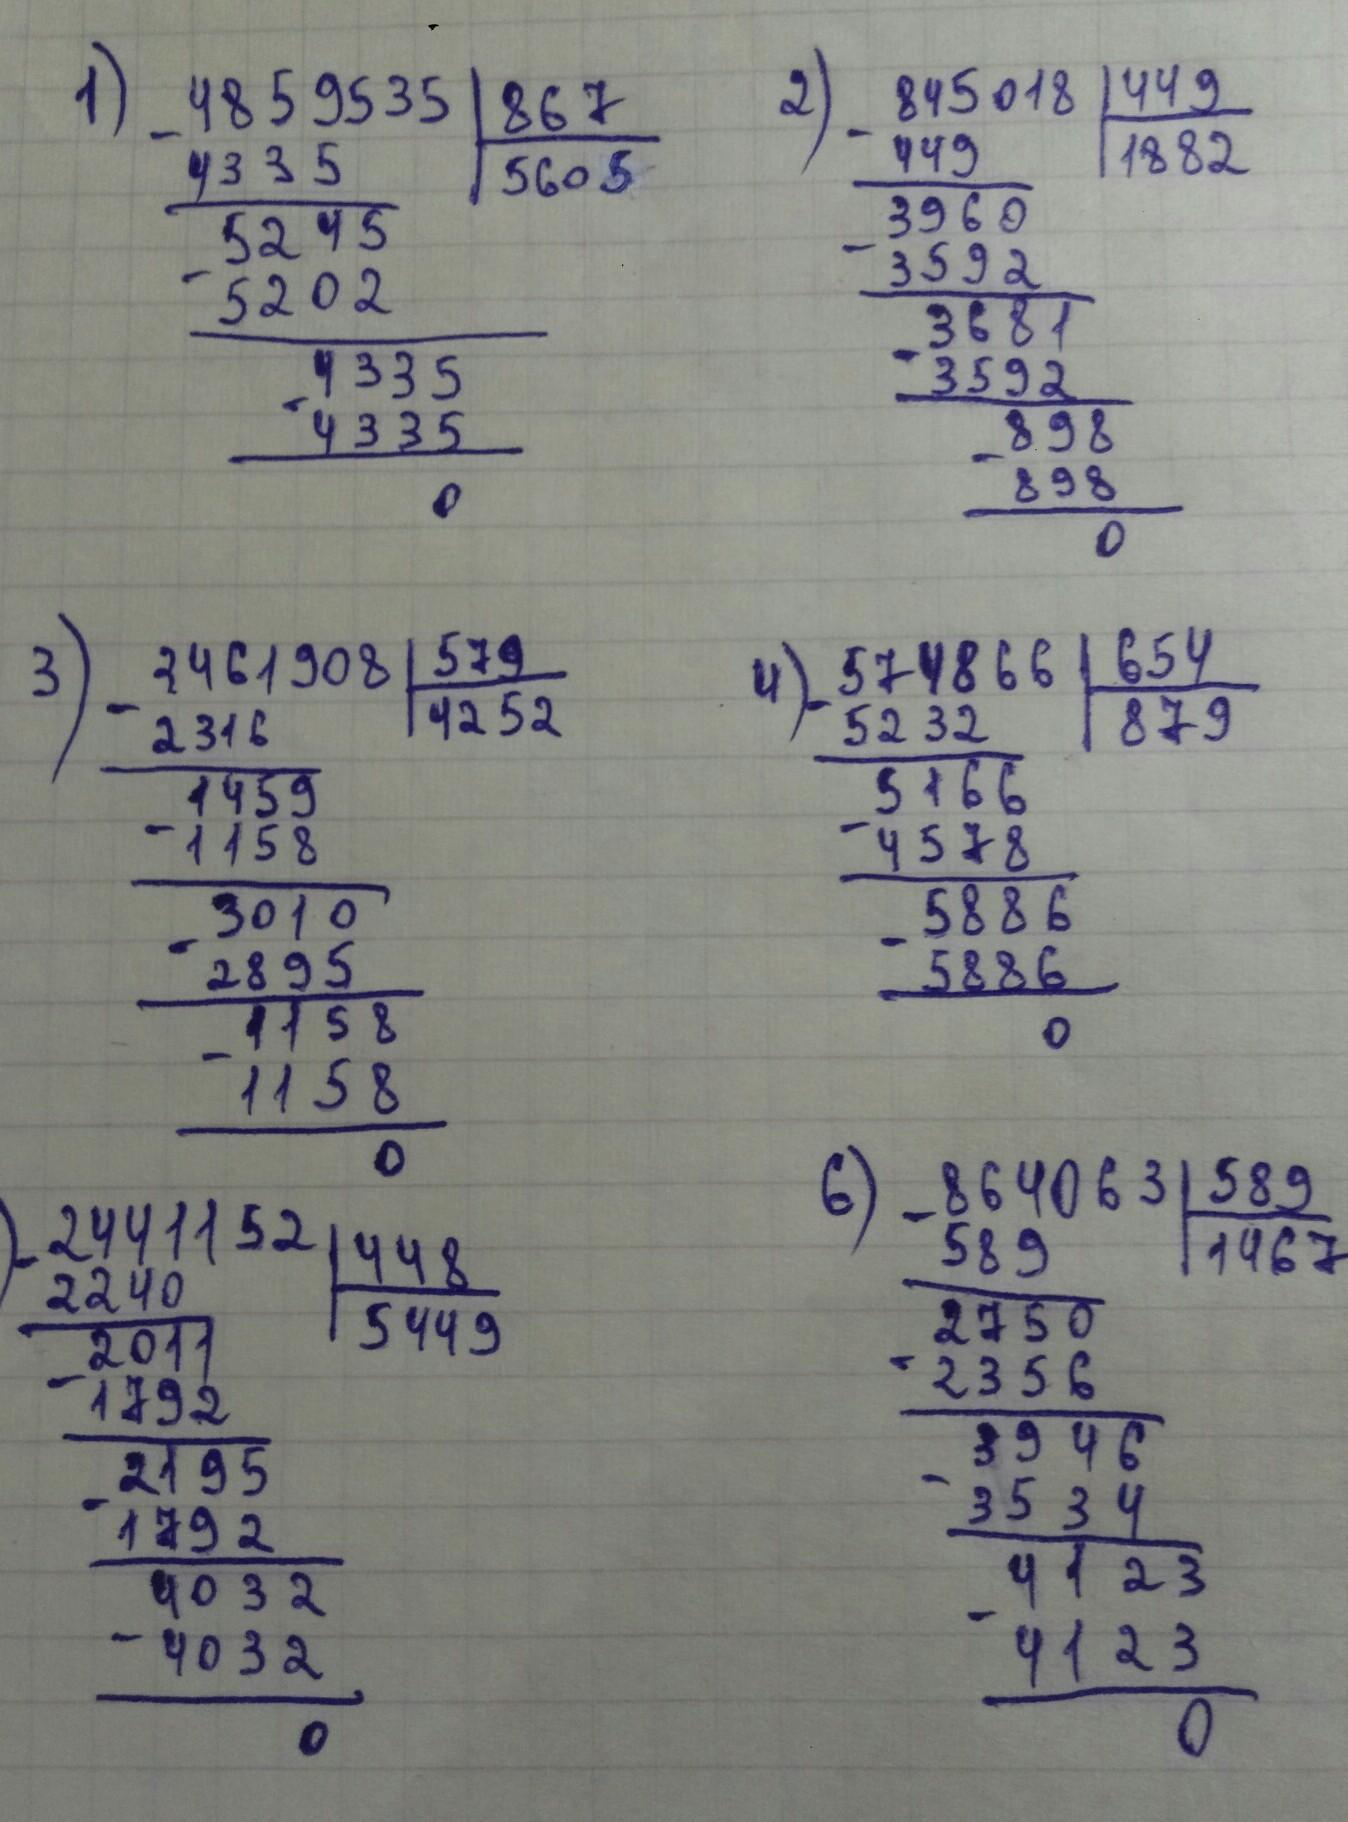 1) - 4859535 | 867
4335 | 5605
5245
- 5202
4335
- 4335
0
2) - 845018 | 449
449 | 1882
3960
- 3592
3681
- 3592
898
- 898
0
3) - 2461908 | 579
2316 | 4252
1459
- 1158
3010
- 2895
1158
- 1158
0
4) - 574866 | 654
5232 | 879
5166
- 4578
5886
- 5886
0
) - 24411152 | 448
2240 | 5449
2011
- 1792
2195
- 1792
4032
- 4032
0
6) - 864063 | 589
589 | 1467
2750
- 2356
3946
- 3534
4123
- 4123
0